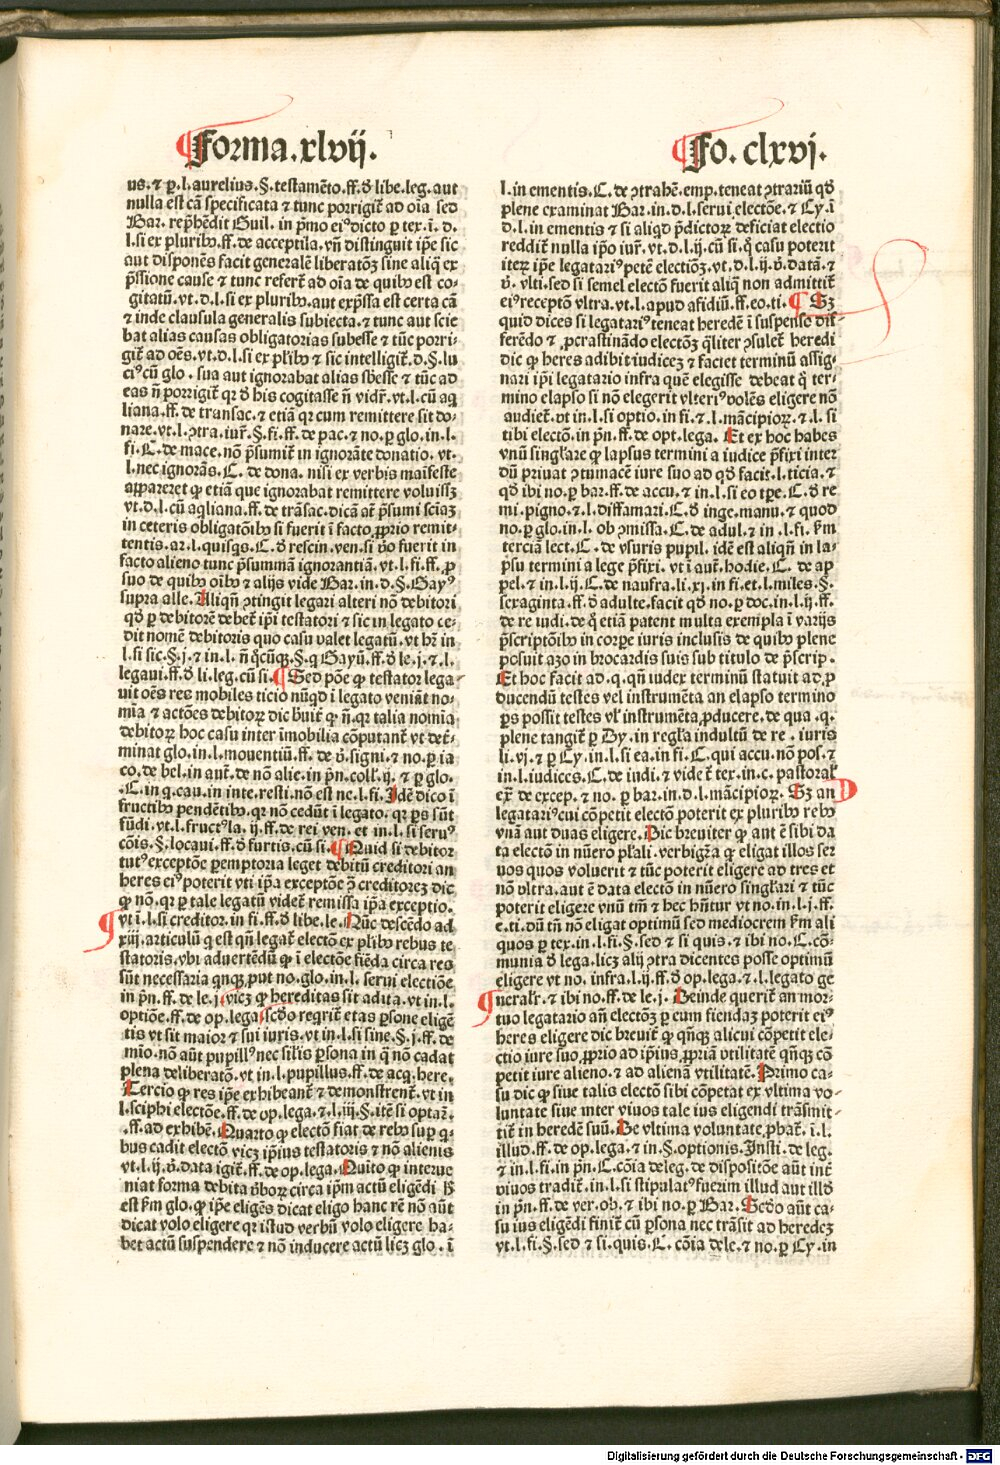 Forma.xlvij.
us.⁊ ꝑ.l.aurelius.§.testamēto.ff.ð libe.leg.aut
nulla est cā specificata ⁊ tunc porrigit̄ ad oīa sed
Bar. rep̄hēdit Guil. in pͥmo eiꝰ dicto ꝑ tex.ī.d.
l.si ex pluribꝰ.ff.de acceptila.vn̄ distinguit ip̄e sic
aut disponēs facit generalē liberatōꝫ sine aliq̄ ex
p̄ssione cause ⁊ tunc refert̄ ad oīa de quibꝰ est co-
gitatū.vt.d.l.si ex pluribꝰ.aut exp̄ssa est certa cā
⁊ inde clausula generalis subiecta.⁊ tunc aut scie
bat alias causas obligatorias subesse ⁊ tūc porri-
git̄ ad oēs.vt.d.l.si ex pl'ibꝰ ⁊ sic intelligit̄.d.§.lu
ciꝰ cū glo. sua aut ignorabat alias sb̄esse ⁊ tūc ad
eas n̄ porrigit̄ qr ð his cogitasse n̄ vidr̄.vt.l.cū aq̄
liana.ff.de transac.⁊ etiā qr cum remittere sit do-
nare.vt.l.ↄtra.iur̄.§.fi.ff.de pac.⁊ no.ꝑ glo.in.l.
fi.C.de mace.nō p̄sumit̄ in ignorāte donatio.vt.
l.nec ignorās.C.de dona. nisi ex verbis maīfeste
appareret ꝙ etiā que ignorabat remittere voluissꝫ
vt.d.l.cū aq̄liana.ff.de trāsac.dicā at̄ p̄sumi sciaꝫ
in ceteris obligatōībꝰ si fuerit ī facto ꝓprio remit-
tentis.ar.l.quisq̄s.C.ð rescin.ven.si v̊o fuerit in
facto alieno tunc p̄summā ignorantiā.vt.l.fi.ff.ꝓ
suo de quibꝰ oībꝰ ⁊ alijs vide Bar.in.d.§.Gayꝰ
supra alle. Aliqn̄ ↄtingit legari alteri nō debitori
qð ꝑ debitorē debet̄ ip̄i testatori ⁊ sic in legato ce-
dit nomē debitoris quo casu valet legatū.vt hr̄ in
l.si sic.§.j.⁊ in.l. n̄ q̄cūqꝫ.§.q Gayū.ff.ð le.j.⁊.l.
legaui.ff.ð li.leg.cū si. Sed pōe ꝙ testator lega-
uit oēs res mobiles ticio nūqd ī legato veniāt no-
mīa ⁊ actōes debitoꝝ dic b̄uit̄ ꝙ n̄.qr talia nomīa
debitoꝝ hoc casu inter īmobilia cōputant̄ vt det̄-
minat glo.in.l.mouentiū.ff. de v̊.signi.⁊ no.ꝑ ia
co.de bel.in aut̄.de nō alie.in p̄n.coll'.ij.⁊ ꝑ glo.
.C.in q.cau.in inte.resti.nō est ne.l.fi. Idē dico ī
fructibꝰ pendētibꝰ.qr nō cedūt ī legato. qr p̄s sūt
fūdi.vt.l.fructꝰ.la.ij.ff.de rei ven. et in.l.si seruꝰ
cōis.§.locaui.ff.ð furtis.cū si. Quid si debitor
tutꝰ exceptōe ꝑemptoria leget debitū creditori an
heres eiꝰ poterit vti ip̄a exceptōe ꝯ̄ creditoreꝫ dic
ꝙ nō.qr ꝑ tale legatū videt̄ remissa ip̄a exceptio.
vt ī.l.si creditor.in fi.ff.ð libe.le. Nūc descēdo ad
xiij.articulū q̄ est qn̄ legat̄ electō ex pl'ibꝰ rebus te
statoris.vbi aduertēdū ꝙ ī electōe fiēda circa res
sūt necessaria qnqꝫ ꝓut no.glo.in.l. serui electiōe
in p̄n.ff.de le.j. vicꝫ ꝙ hereditas sit adita.vt in.l.
optiōe.ff.de op.lega. scðo req̄rit̄ etas ꝑsone eligē
tis vt sit maior ⁊ sui iuris.vt in.l.si sine.§.j.ff.de
mīo.nō aūt pupillꝰ nec sil'is ꝑsona in q̄ nō cadat
plena deliberatō.vt in.l.pupillus.ff.de acq̄.here.
Tercio ꝙ res ip̄e exhibeant̄ ⁊ demonstrent̄.vt in
l.sciphi electōe.ff.de op.lega.⁊.l.iij.§.itē si optaz̄.
.ff.ad exhibē. Quarto ꝙ electō fiat de rebꝰ suꝑ q̄-
bus cadit electō vicꝫ ip̄ius testatoris ⁊ nō alienis
vt.l.ij.v̊.data igit̄.ff.de op.lega. Quīto ꝙ interue
niat forma debita v̊boꝝ circa ip̄m actū eligēdi ꝶ
est km̄ glo.ꝙ ip̄e eligēs dicat eligo hanc rē nō aūt
dicat volo eligere qr istud verbū volo eligere ha-
bet actū suspendere ⁊ nō inducere actū licꝫ glo. ī
Fo. clxvj.
l.in ementis.C.de ↄtrahē.emp.teneat ↄtrariū qð
plene examinat Bar.in.d.l.serui electōe.⁊ Cy.ī
d.l.in ementis ⁊ si aliqd p̄dictoꝝ deficiat electio
reddit̄ nulla ip̄o iur̄.vt.d.l.ij.cū si.q̄ casu poterit
iteꝝ ip̄e legatariꝰ petē electiōꝫ.vt.d.l.ij.v̊.datā.⁊
v̊. vlti.sed si semel electō fuerit aliq̄ non admittit̄
eiꝰ receptō vltra.vt.l.apud afidiū.ff.eo.ti. Sꝫ
quid dices si legatariꝰ teneat heredē ī suspenso dif-
ferēdo ⁊ ꝓcrastināndo electōꝫ q̄liter ↄsulet̄ heredi
dic ꝙ heres adibit iudiceꝫ ⁊ faciet terminū assig-
nari ip̄i legatario infra quē elegisse debeat q̄ ter-
mino elapso si nō elegerit vlteriꝰ volēs eligere nō
audiet̄.vt in.l.si optio.in fi.⁊.l.mācipioꝝ.⁊.l.si
tibi electō.in p̄n.ff.de opt.lega. Et ex hoc habes
vnū singl'are ꝙ lapsus termini a iudice p̄fixi inter
dū priuat ↄtumacē iure suo ad qð facit.l.ticia.⁊
qð ibi no.ꝑ bar.ff.de accu.⁊ in.l.si eo tp̄e.C.ð re
mi.pigno.⁊.l.diffamari.C.ð inge.manu.⁊ quod
no.ꝑ glo.in.l.ob ↄmissa.C.de adul.⁊ in.l.fi.km̄
terciā lect.C.de vsuris pupil. idē est aliqn̄ in la-
psu termini a lege p̄fixi.vt ī aut̄.hodie.C. de ap
pel.⁊ in.l.ij.C.de naufra.li.xj.in fi.et.l.miles.§.
sexaginta.ff.ð adulte.facit qð no.ꝑ doc.in.l.ij.ff.
de re iudi.de q̄ etiā patent multa exempla ī varijs
p̄scriptōībꝰ in corꝑe iuris inclusis de quibꝰ plene
posuit azo in brocardis suis sub titulo de p̄scrip.
Et hoc facit ad.q.qn̄ iudex terminū statuit ad ꝓ
ducendū testes vel instrumēta an elapso termino
ꝑs possit testes vl' instrumēta ꝓducere.de qua.q.
plene tangit̄ ꝑ Dy.in regl'a indultū de re. iuris
li.vj.⁊ ꝑ Cy.in.l.si ea.in fi.C.qui accu.nō pos.⁊
in.l.iudices.C.de iudi.⁊ vide t̄ tex.in.c.pastoral'
ex̄.de excep.⁊ no.ꝑ bar.in.d.l.mācipioꝝ. Sꝫ an
legatariꝰ cui cōpetit electō poterit ex pluribꝰ rebꝰ
vnā aut duas eligere. Dic breuiter ꝙ aut ē sibi da
ta electō in nūero pl'ali.verbigr̄a ꝙ eligat illos ser
uos quos voluerit ⁊ tūc poterit eligere ad tres et
nō vltra.aut ē data electō in nūero singl'ari ⁊ tūc
poterit eligere vnū tm̄ ⁊ hec hn̄tur vt no.in.l.j.ff.
e.ti.dū tn̄ nō eligat optimū sed mediocrem km̄ ali
quos ꝑ tex.in.l.fi.§.sed ⁊ si quis.⁊ ibi no.C.cō-
munia ð lega.licꝫ alij ↄtra dicentes posse optimū
eligere vt no. infra.l.ij.ff.ð op.lega.⁊.l.legato ge
neralr̄.⁊ ibi no.ff.de le.j. Deinde querit̄ an mor-
tuo legatario an̄ electōꝫ ꝑ eum fiendaꝫ poterit eiꝰ
heres eligere dic breuit̄ ꝙ qn̄qꝫ alicui cōpetit ele-
ctio iure suo ꝓprio ad ip̄ius ꝓpriā vtilitatē qn̄qꝫ cō
petit iure alieno.⁊ ad alienā vtilitatē. Primo ca-
su dic ꝙ siue talis electō sibi cōpetat ex vltima vo-
luntate siue inter viuos tale ius eligendi trāsmit-
tit̄ in heredē suū. De vltima voluntate ꝓbat̄. ī.l.
illud.ff.de op.lega.⁊ in.§.optionis.Insti.de leg.
⁊ in.l.fi.in p̄n.C.cōia de leg.de dispositōe aūt int̄
viuos tradit̄.in.l.si stipulatꝰ fuerim illud aut illð
in p̄n.ff.de ver.ob.⁊ ibi no.ꝑ Bar. Scðo aūt ca-
su ius eligēdi finit̄ cū ꝑsona nec trāsit ad heredeꝫ
vt.l.fi.§.sed ⁊ si.quis.C. cōia de le.⁊ no.ꝑ Cy.in
D
Digitalisierung gefördert durch die Deutsche Forschungsgemeinschaft - DFG